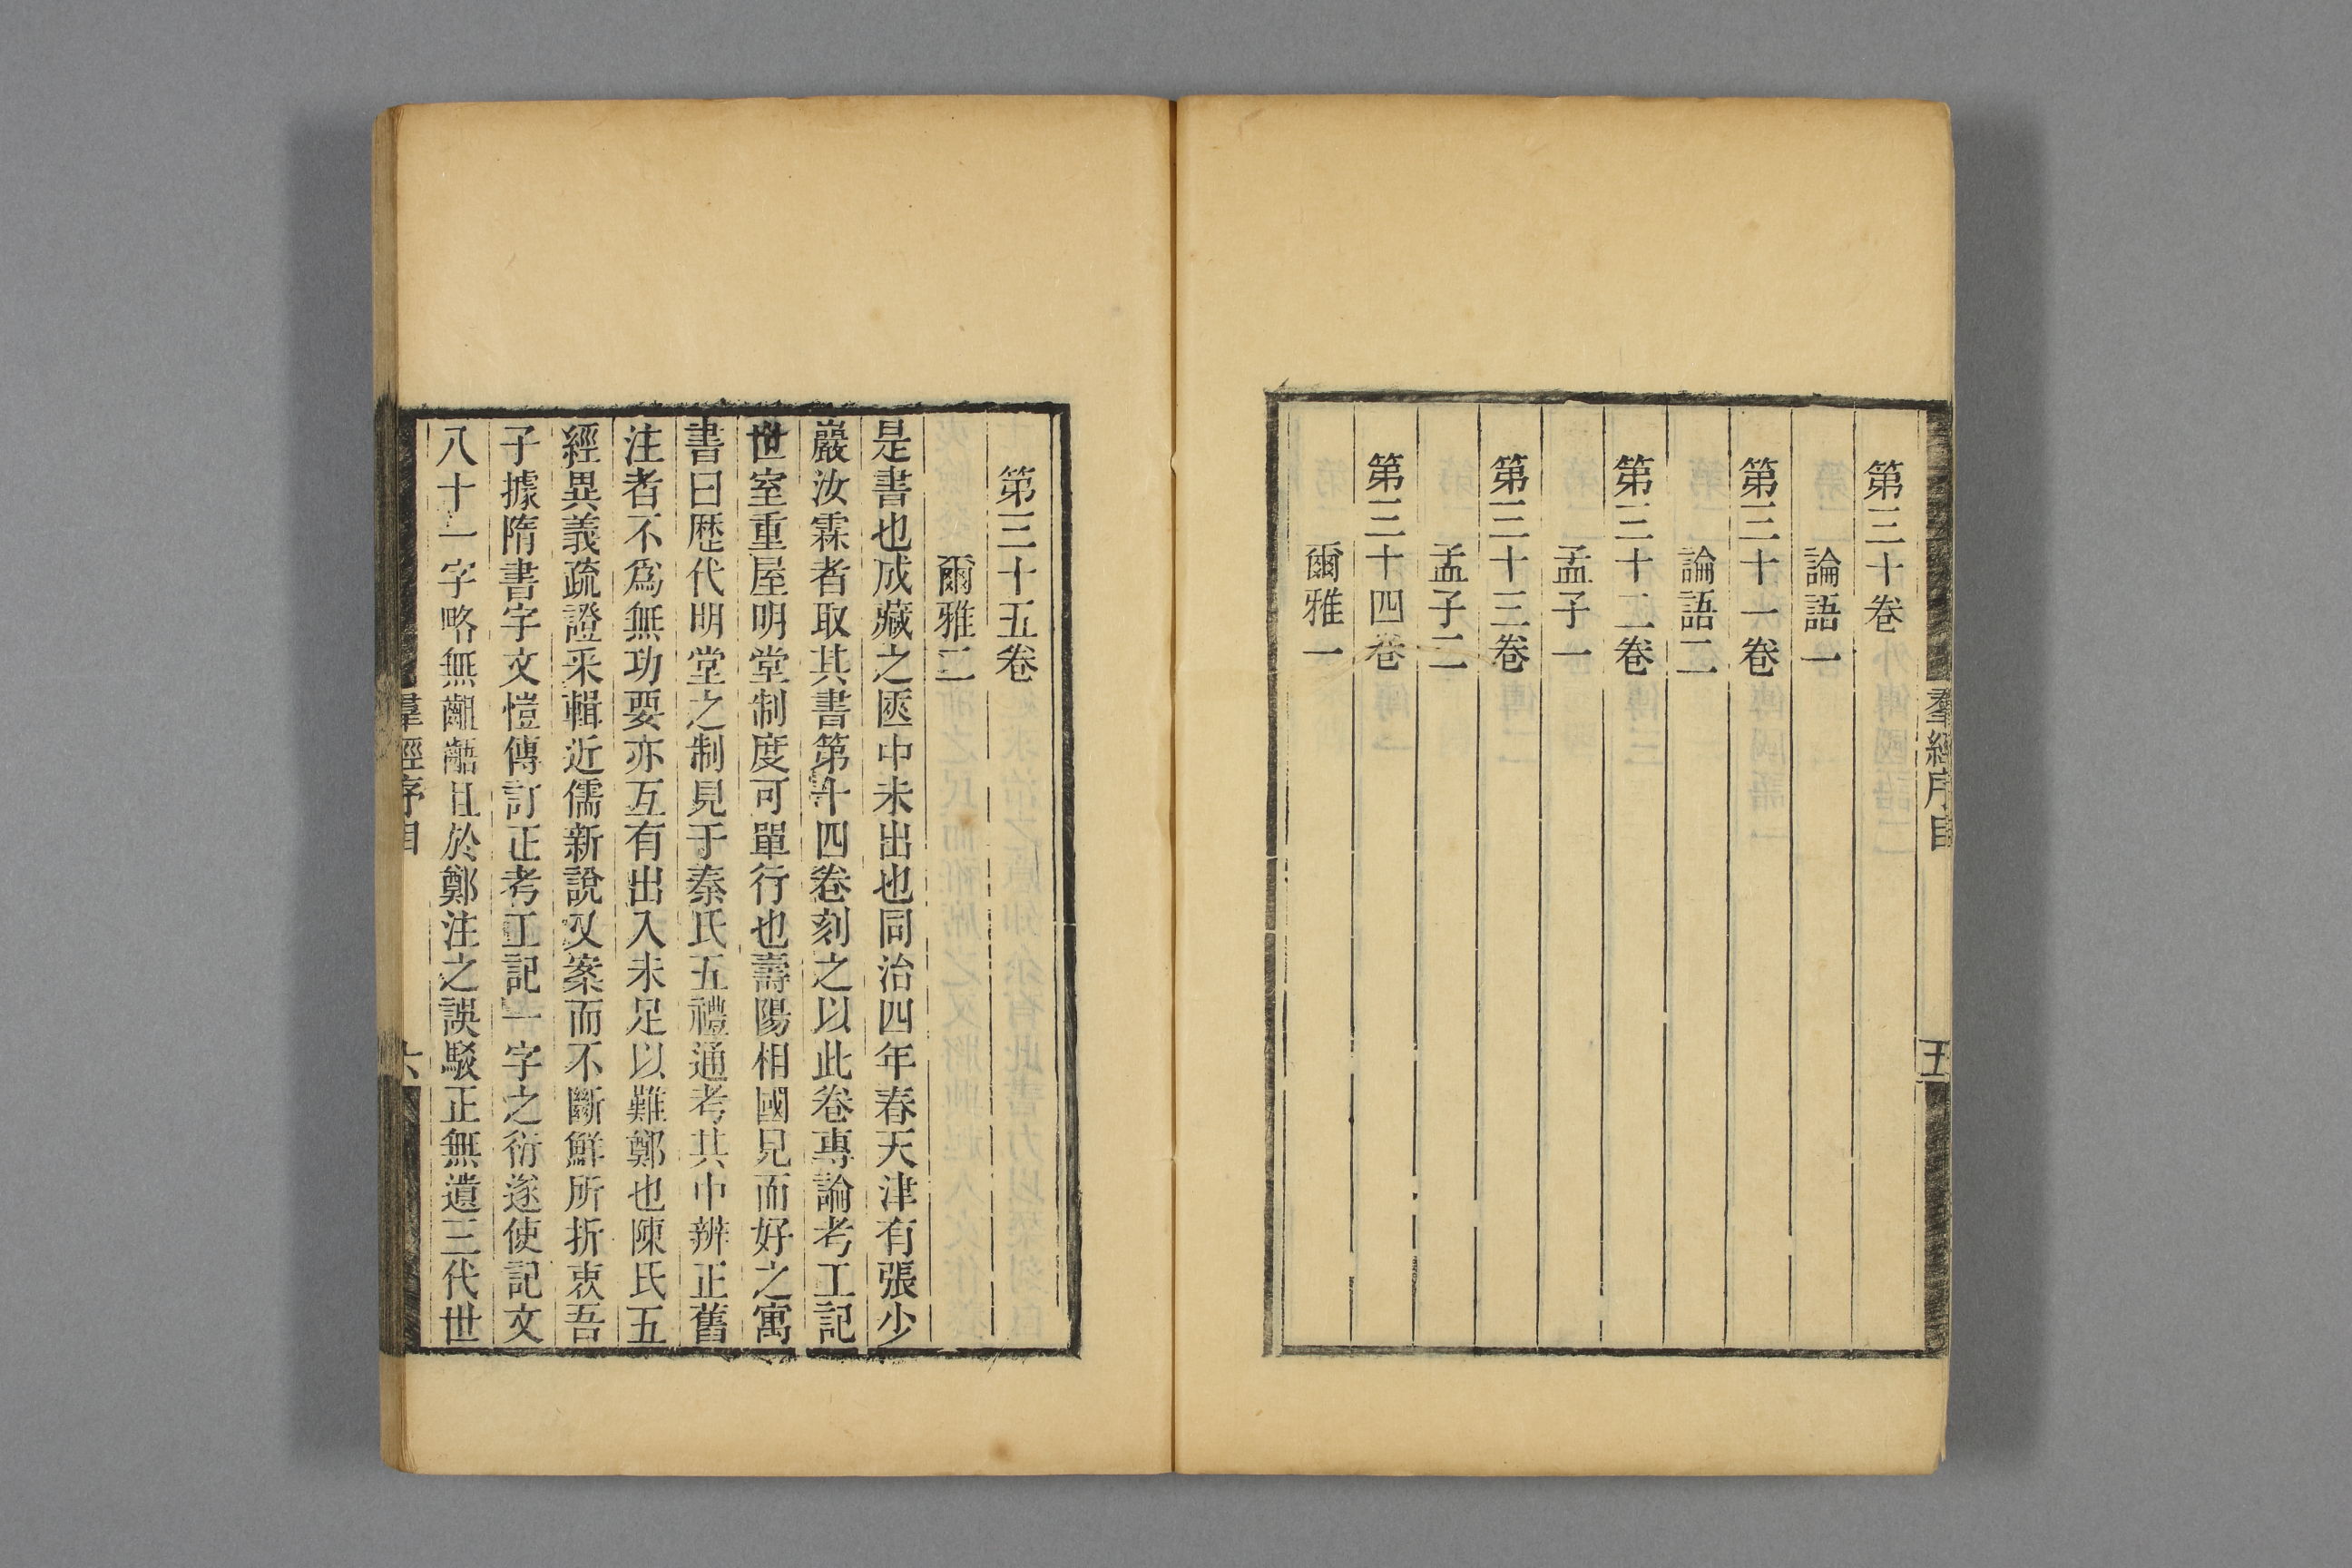 羣經序目
五
第三十卷
論語一
第三十一卷
論語二
第三十二卷
孟子一
第三十三卷
孟子二
第三十四卷
爾雅一
第三十五卷
爾雅二
是書也成藏之匧中未出也同治四年春天津有張少
巖汝霖者取其書第十四卷刻之以此卷專論考工記
世室重屋明堂制度可單行也壽陽相國見而好之寓
書曰歴代明堂之制見于秦氏五禮通考其中辨正舊
注者不爲無功要亦互有出入未足以難鄭也陳氏五
經異義疏證采輯近儒新說又案而不斷鮮所折衷吾
子據隋書宇文愷傳訂正考工記一字之衍遂使記文
八十一字略無齟齬且於鄭注之誤駁正無遺三代世
羣經序目
六